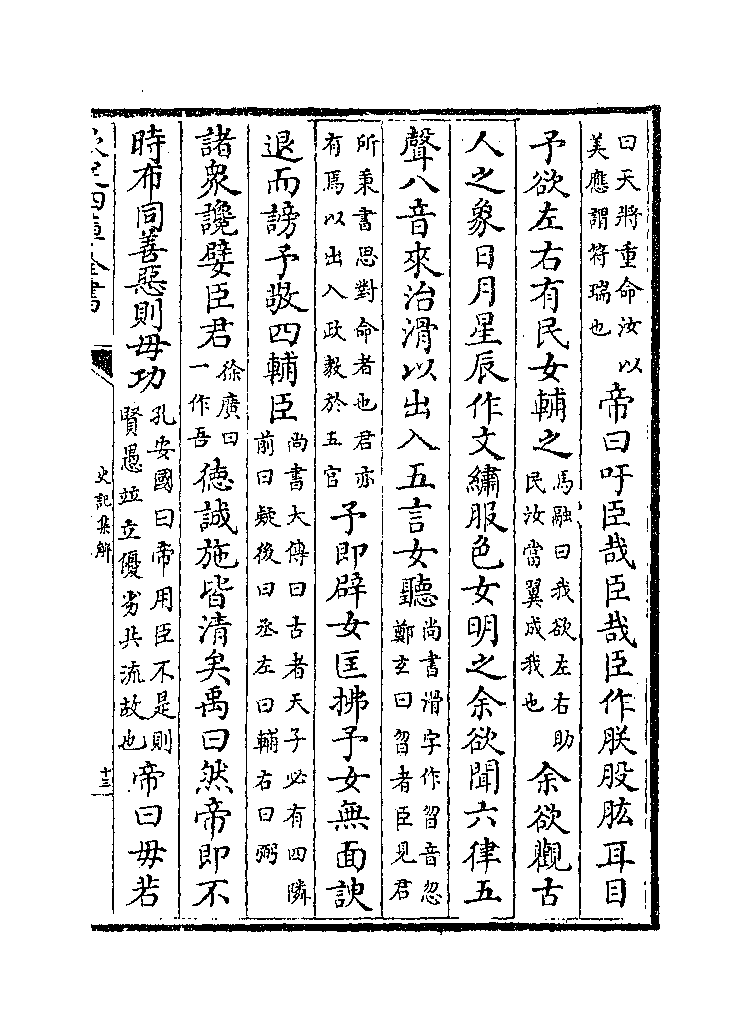 曰天將重命汝以美應謂符瑞也 帝曰吁臣哉臣哉臣作朕股肱耳目
予欲左右有民女輔之 馬融曰我欲左右助民汝當翼成我也 余欲觀古
人之象日月星辰作文繡服色女明之余欲聞六律五
聲八音來治滑以出入五言女聽 尚書滑字作曶音忽鄭玄曰曶者臣見君
所秉書思對命者也君亦有焉以出入政教於五官 予即辟女匡拂予女無面諛
退而謗予敬四輔臣 尚書大傳曰古者天子必有四隣前曰疑後曰丞左曰輔右曰弼
諸衆讒嬖臣君 徐廣曰一作吾 德誠施皆清矣禹曰然帝即不
時布同善惡則毋功 孔安國曰帝用臣不是則賢愚並立優劣共流故也 帝曰毋若
史記集解
十三